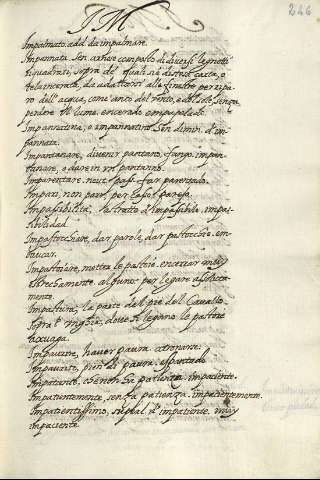 I M
246
Impalmato. add. da impalmare.
Impannata. Sen. arnese composto di diversi legnetti
riquadrati, sopra de quali si è distesa carta, o
tela incerata, da adattarsi alle finestre per ripa-
ro dell' acqua, come anco del vento, e del sole senza
perdere il lume. encerado empapelado.
Impannatina, o impannatino Sen. dimin. d'im-
pannata.
Impantanare, divenir pantano, fango. impan-
tanare, o dare in un pantanno.
Imparentare. neut. pass. far parentado.
Impari, non pare, per caso parejo.
Impassibilità, astratto d'impassibile. impas-
sibilidad
Impastocchiare, dar parole, dar pastocchie. em-
baucar.
Impastoiare, mettre le pastoie.
strechamente
mente.
Impastura, la parte del piè del Cavallo
sopra l'unghia, dove si legano le pastoie
Impaurire, haver paura. atronarse.
Impaurito, pien di paura. espantado
Impatiente, che non ha patienza. impaciente.
Impatientemente, senza patienza. impacientemente.
Impatientissimo, superl. d'impatiente. muy
impaciente